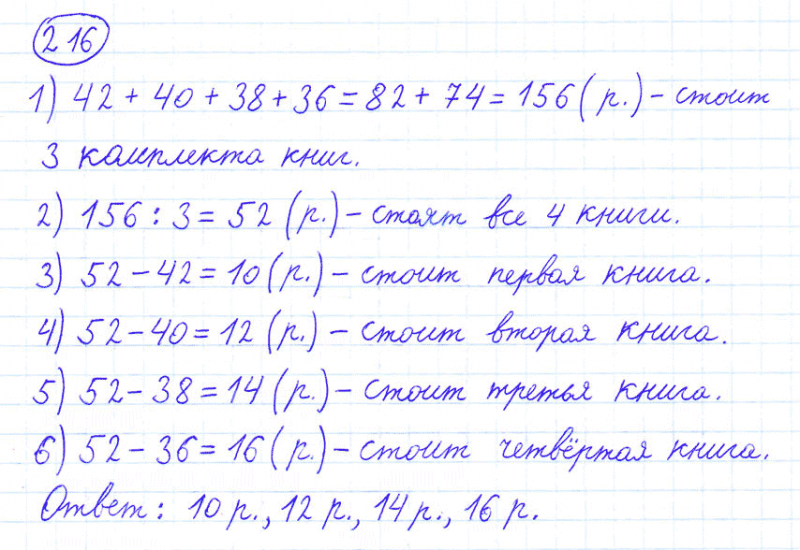 216
1) 42 + 40 + 38 + 36 = 82 + 74 = 156 (р.) – стоит
3 комплекта книг.
2) 156 : 3 = 52 (р.) – стоят все 4 книги.
3) 52 – 42 = 10 (р.) – стоит первая книга.
4) 52 – 40 = 12 (р.) – стоит вторая книга.
5) 52 – 38 = 14 (р.) – стоит третья книга.
6) 52 – 36 = 16 (р.) – стоит четвёртая книга.
Ответ: 10 р., 12 р., 14 р., 16 р.